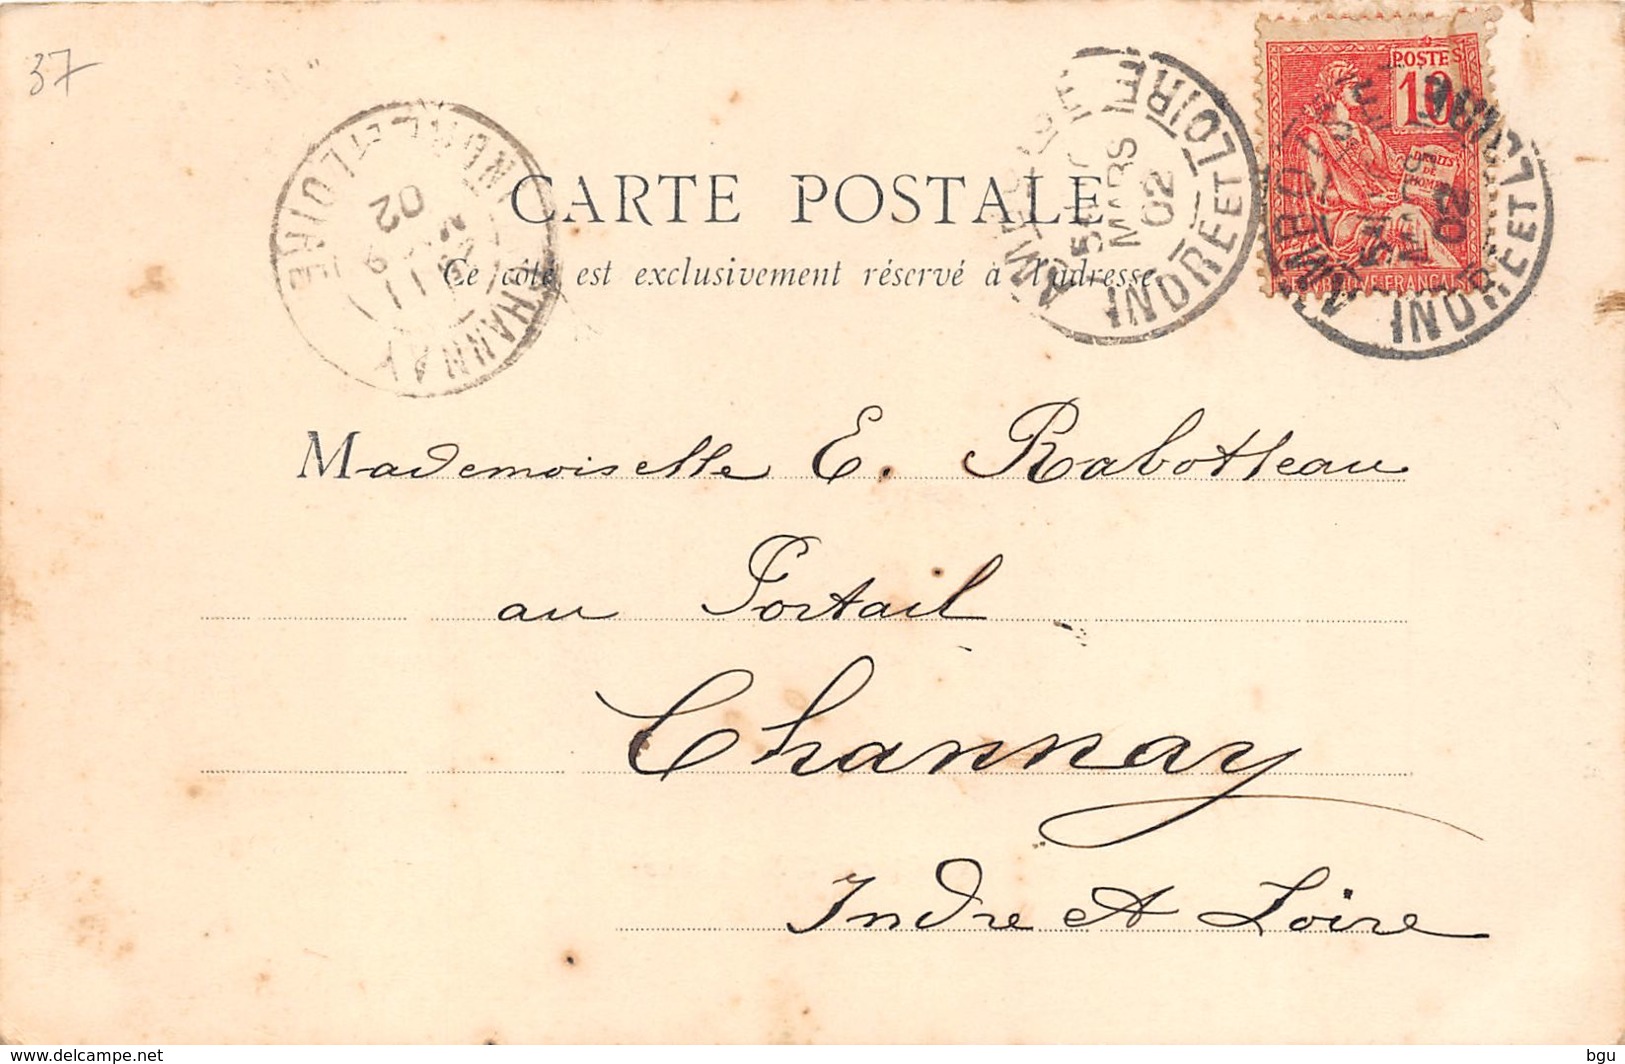 37
POSTES
10
DROITS
DE
HOMME
RÉPUBLIQUE FRANÇAISE
MARS
02
INDRE ET LOIRE
INDRE ET LOIRE
CHANNAY
INDRE-ET-LOIRE
02
CARTE POSTALE
Ce côté est exclusivement réservé à l'adresse.
Mademoiselle E. Rabotteau
au Portail
Channay
Indre et Loire
www.delcampe.net
bgu